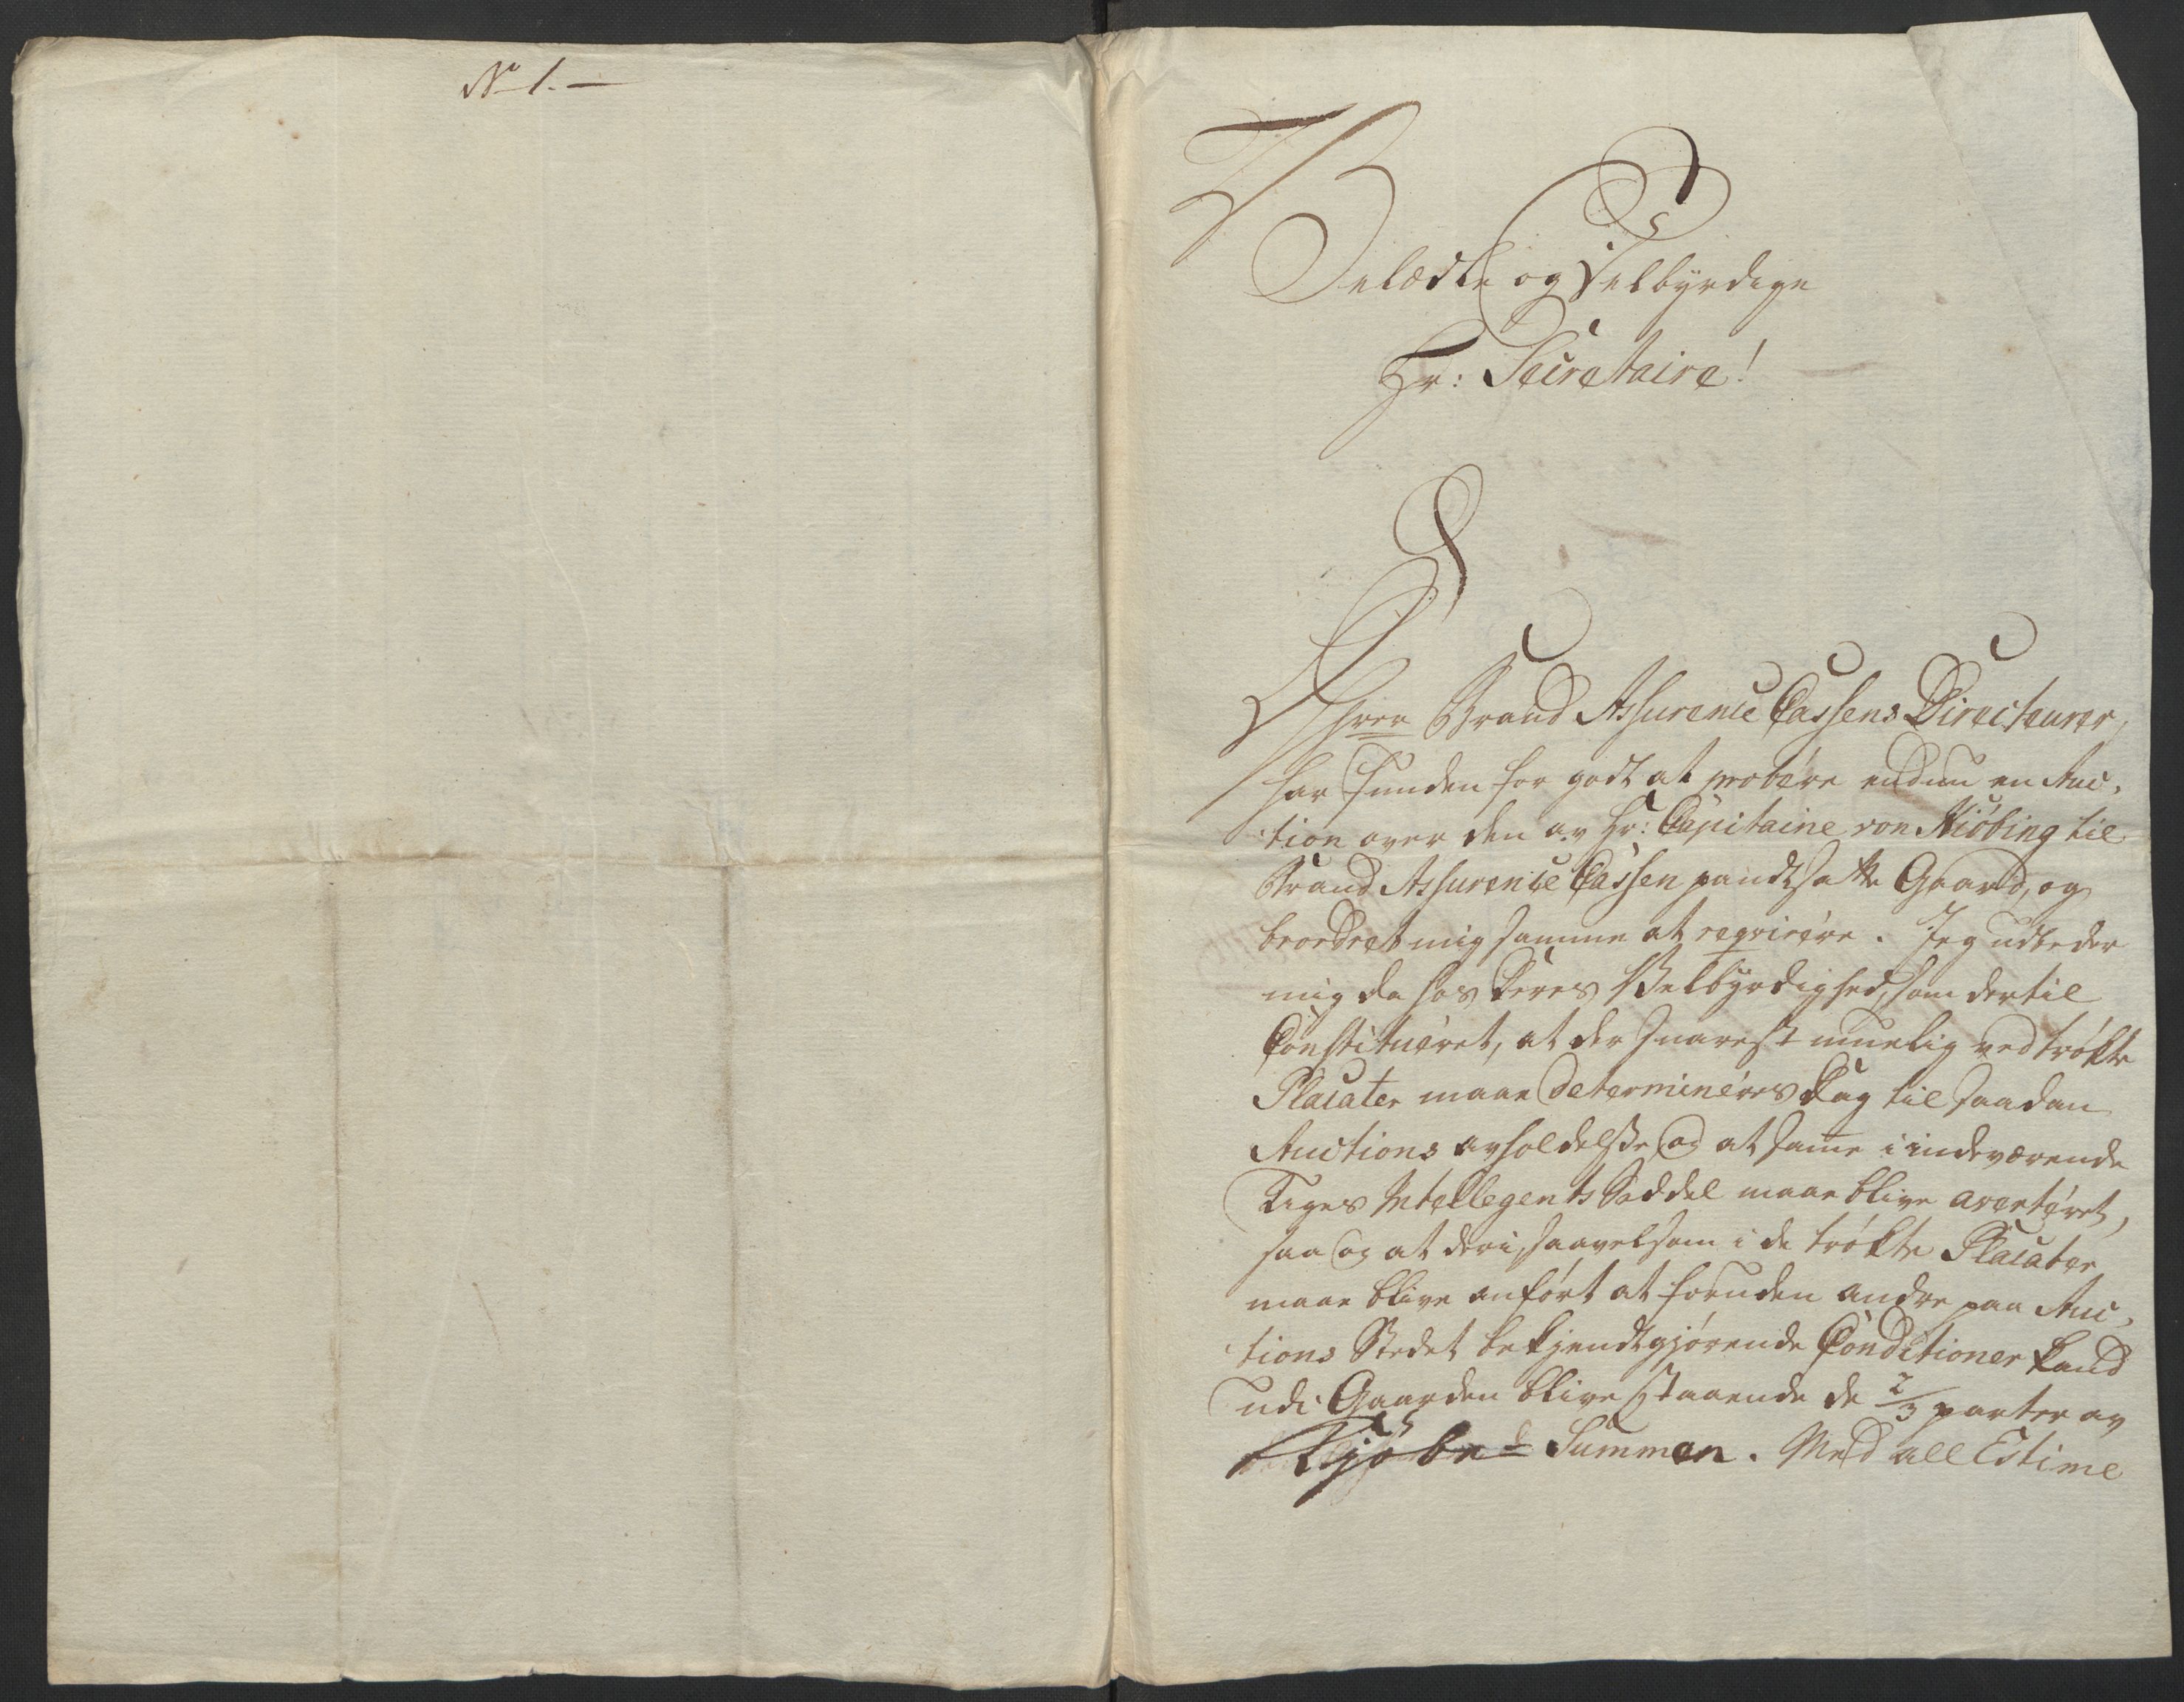 No 1.—
Velædle og Velbyrdige
Hr: Secretaire!
Herrer Brand Assurence Cassens Directeurer,
har funden for godt at probere endnu en Auc¬
tion over den av Hr: Capitaine von Kiöbing til
Brand Assurence Cassen pandtsatte Gaard, og
beordret mig samme at reqvirere. Jeg udbeder
mig da hos Deres Velbyrdighed, som dertil
Constitueret, at der snarest muelig ved trökte
Placater maae determineres Dag til saadan
Auctions avholdelse og at same i indeværende
Uges Intellegents Seddel maae blive averteret,
saa og at deri, saavelsom i de trökte Placater
maae blive anfört at foruden andre paa Auc¬
tions Stedet bekjendtgjörende Conditioner kand
udi Gaarden blive staaende de 2/3 parter av
Kjöbe Summen. Med all Estime